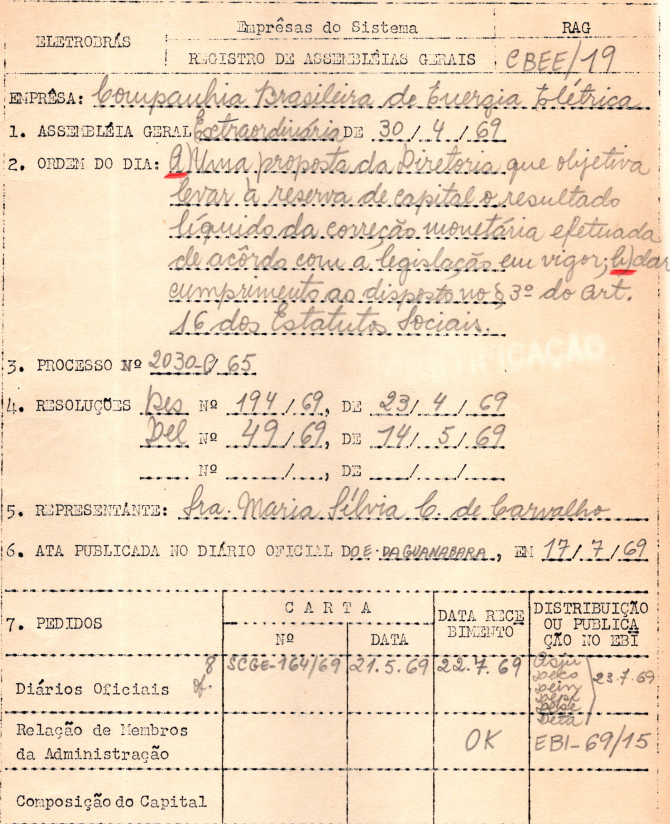 ELETROBRÁS
Emprêsas do Sistema
RAG
REGISTRO DE ASSEMBLÉIAS GERAIS
CBEE/19
EMPRÊSA: Companhia Brasileira de Energia Elétrica
1. ASSEMBLÉIA GERAL Extraordinária DE 30/4/69
2. ORDEM DO DIA: a) Uma proposta da Diretoria que objetiva
levar à reserva de capital o resultado
líquido da correção monetária efetuada
de acôrdo com a legislação em vigor; b) dar
cumprimento ao disposto no § 3º do Art.
16 dos Estatutos Sociais.
3. PROCESSO Nº 2030-C/65
4. RESOLUÇÕES Des Nº 194/69, DE 23/4/69
Del Nº 49/69, DE 14/5/69
Nº / , DE / /
5. REPRESENTANTE: Sra. Maria Sílvia C. de Carvalho
6. ATA PUBLICADA NO DIÁRIO OFICIAL DO E. DA GUANABARA, EM 17/7/69
7. PEDIDOS
C A R T A
Nº
DATA
DATA RECE
BIMENTO
DISTRIBUIÇÃO
OU PUBLICA
ÇÃO NO EBI
Diários Oficiais
8
SCGE-164/69
21.5.69
22.7.69
23.7.69
Relação de Membros
da Administração
OK
EBI-69/15
Composição do Capital